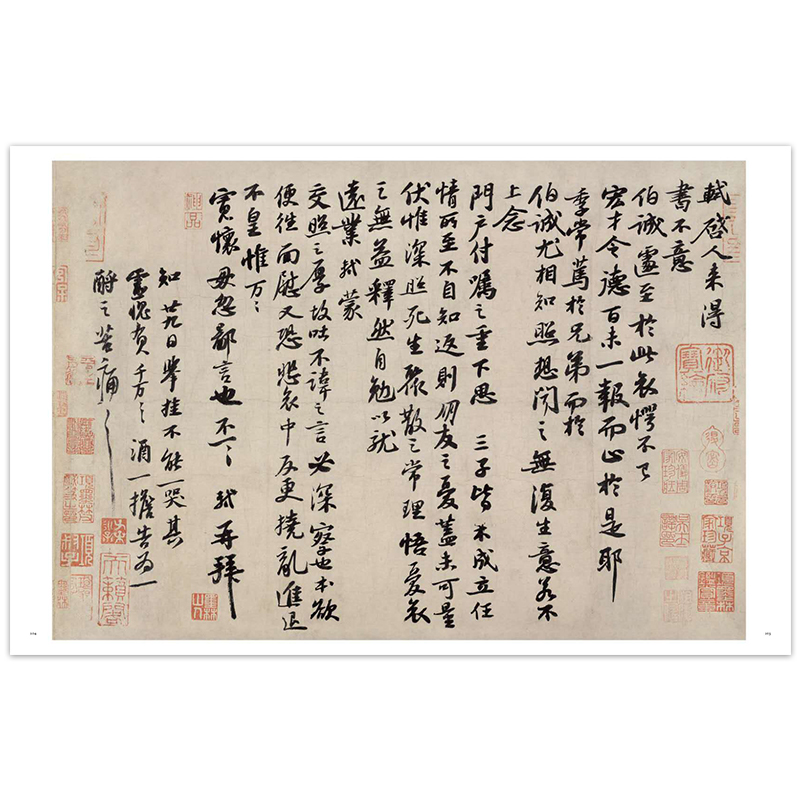 軾啓人来得
書不意
伯誠遽至於此哀愕不已
宏才令德百未一報而止於是耶
季常篤於兄弟而於
伯誠尤相知照想聞之無復生意若不
上念
門戶付囑之重下思三子皆未成立任
情所至不自知返則朋友之憂蓋未可量
伏惟深照死生聚散之常理悟憂哀
之無益釋然自勉以就
遠業軾蒙
交照之厚故吐不諱之言必深察也本欲
便往面慰又恐悲哀中反更撓亂進退
不皇惟万〻
寬懷毋忽鄙言也不一〻軾再拜
知廿九日舉挂不能一哭其
靈愧負千万〻酒一擔告為一
酹之苦痛〻
御府寶繪
項子京家珍藏
天籟閣